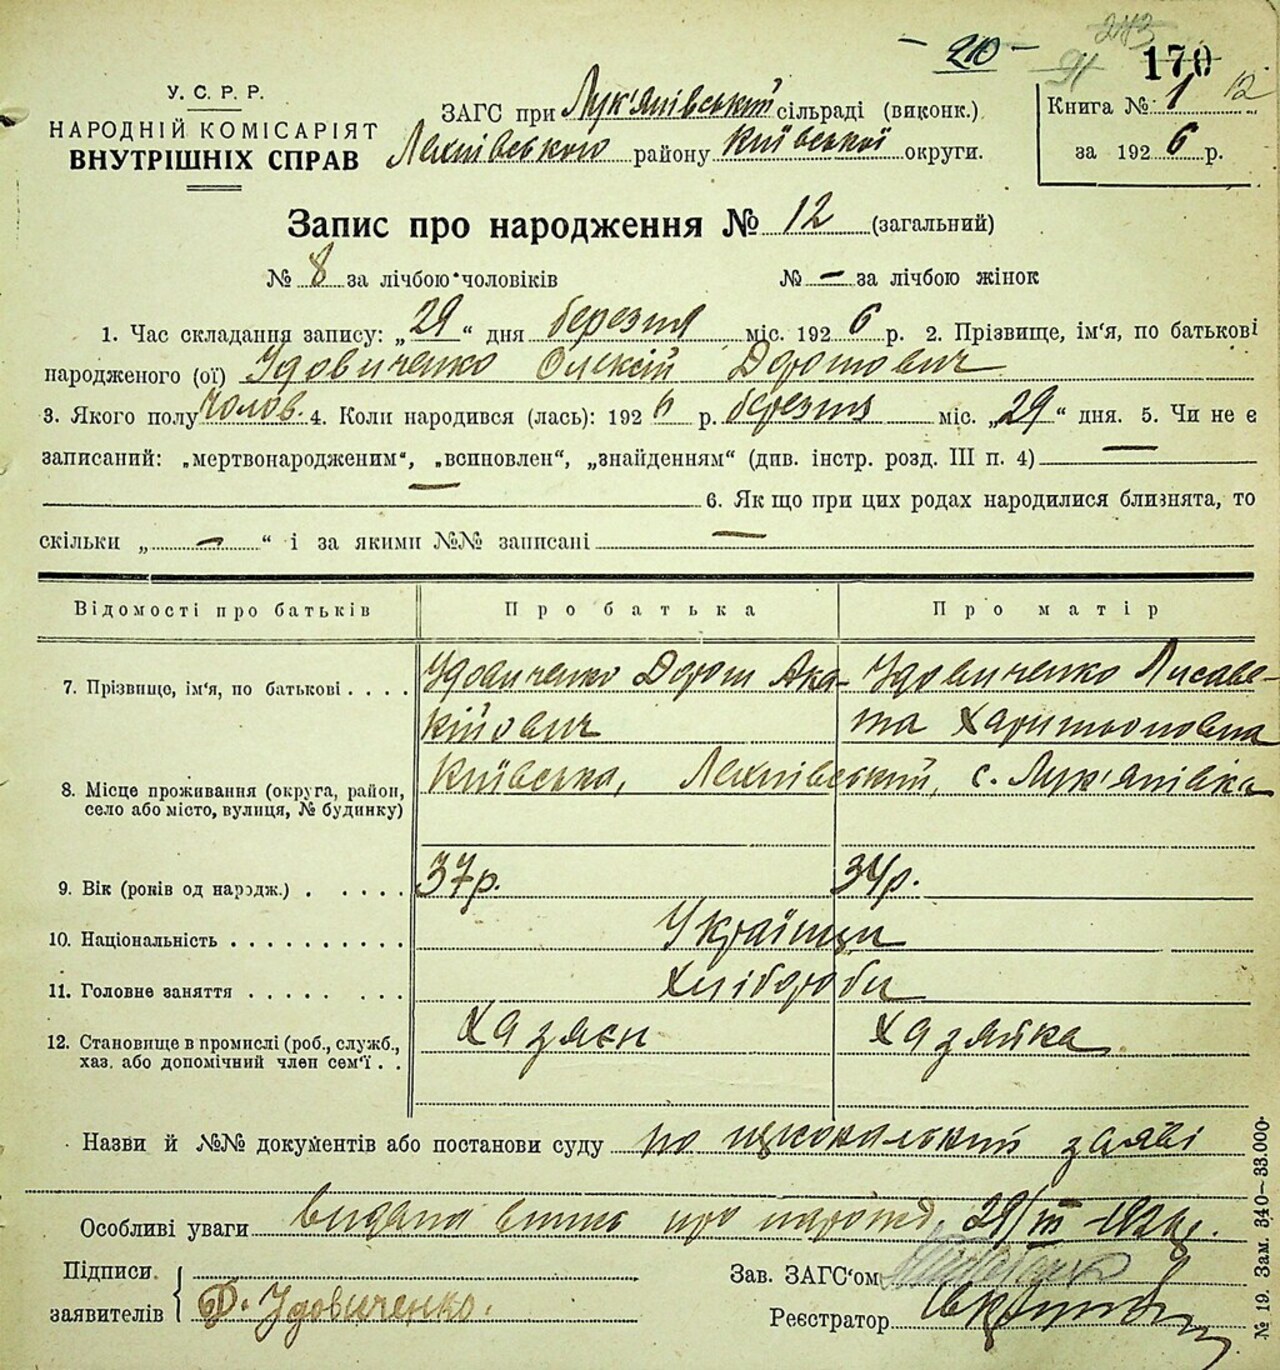 - 210 -
243
91
170
12
У. С. Р. Р.
НАРОДНІЙ КОМІСАРІЯТ
ВНУТРІШНІХ СПРАВ
ЗАГС при Лук'янівський сільраді (виконк.)
Лехнівського району Київської округи.
Книга № 1
за 1926 р.
Запис про народження № 12 (загальний)
№ 8 за лічбою чоловіків № — за лічбою жінок
1. Час складання запису: „29“ дня березня міс. 1926 р. 2. Прізвище, ім'я, по батькові
народженого (ої) Удовиченко Олексій Дорошович
3. Якого полу чолов. 4. Коли народився (лась): 1926 р. березня міс. „29“ дня. 5. Чи не є
записаний: „мертвонародженим“, „всиновлен“, „знайденням“ (див. інстр. розд. III п. 4) —
— 6. Як що при цих родах народилися близнята, то
скільки „ — “ і за якими №№ записані —
Відомості про батьків Про батька Про матір
7. Прізвище, ім'я, по батькові . . . . Удовиченко Дорош Ака- Удовиченко Лисаве-
кійович та Харитоновна
8. Місце проживання (округа, район, Київська, Лехнівський, с. Лук'янівка
село або місто, вулиця, № будинку)
9. Вік (років од народж.) . . . . . 37р. 34р.
10. Національність . . . . . . . . . . Українци
11. Головне заняття . . . . . . . . Хлібороби
12. Становище в промислі (роб., служб., Хазяєн Хазяйка
хаз. або допомічний член сем'ї . .
Назви й №№ документів або постанови суду по заяві
Особливі уваги видана впись про народ. 29/III-1926р.
Підписи Зав. ЗАГС'ом
заявителів Д. Удовиченко. Реєстратор
№ 19. Зам. 340—33.000